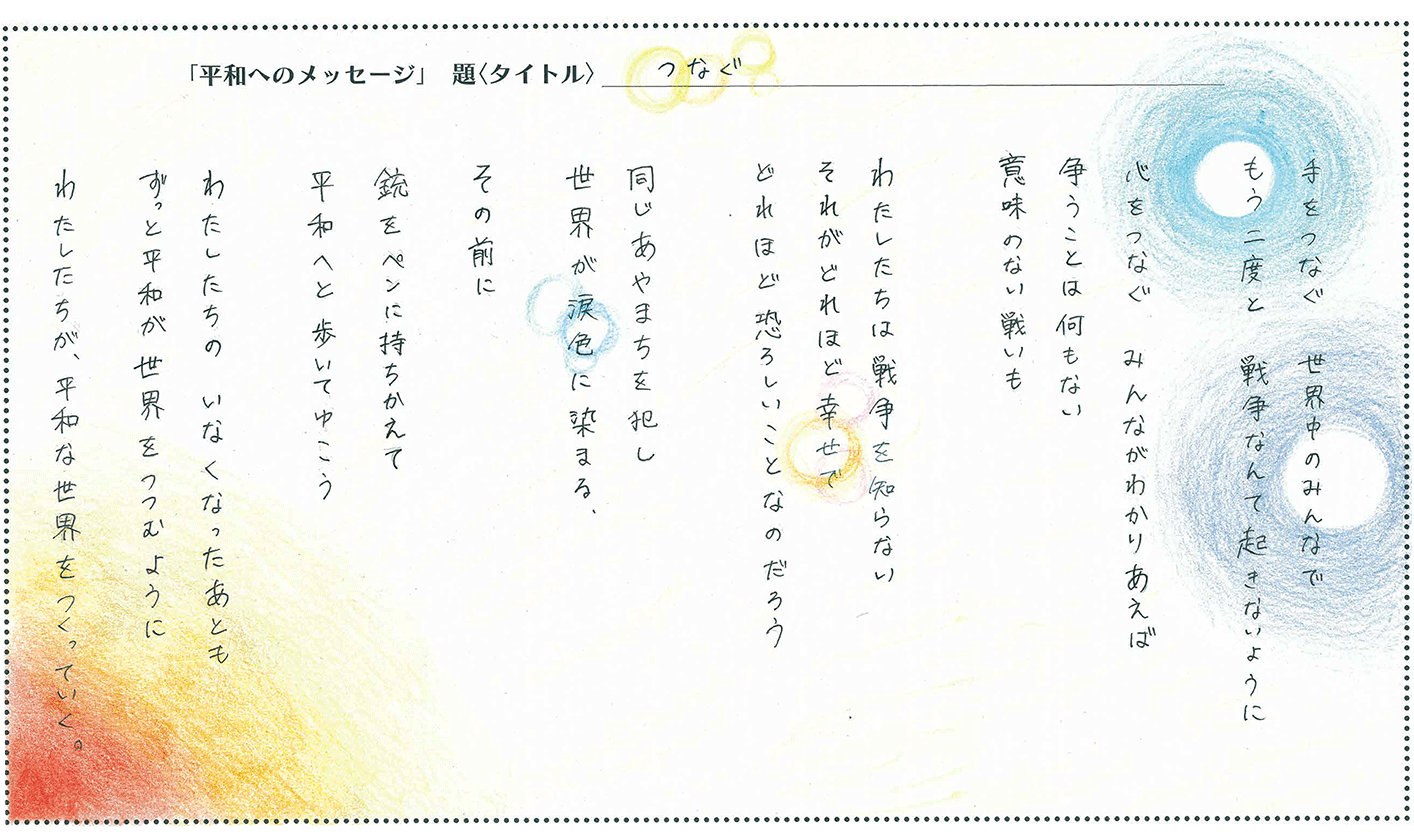 「平和へのメッセージ」 題〈タイトル〉 つなぐ
手をつなぐ 世界中のみんなで
もう二度と 戦争なんて起きないように
心をつなぐ みんながわかりあえば
争うことは何もない
意味のない戦いも
わたしたちは戦争を知らない
それがどれほど幸せで
どれほど恐ろしいことなのだろう
同じあやまちを犯し
世界が涙色に染まる、
その前に
銃をペンに持ちかえて
平和へと歩いてゆこう
わたしたちの いなくなったあとも
ずっと平和が世界をつつむように
わたしたちが、平和な世界をつくっていく。